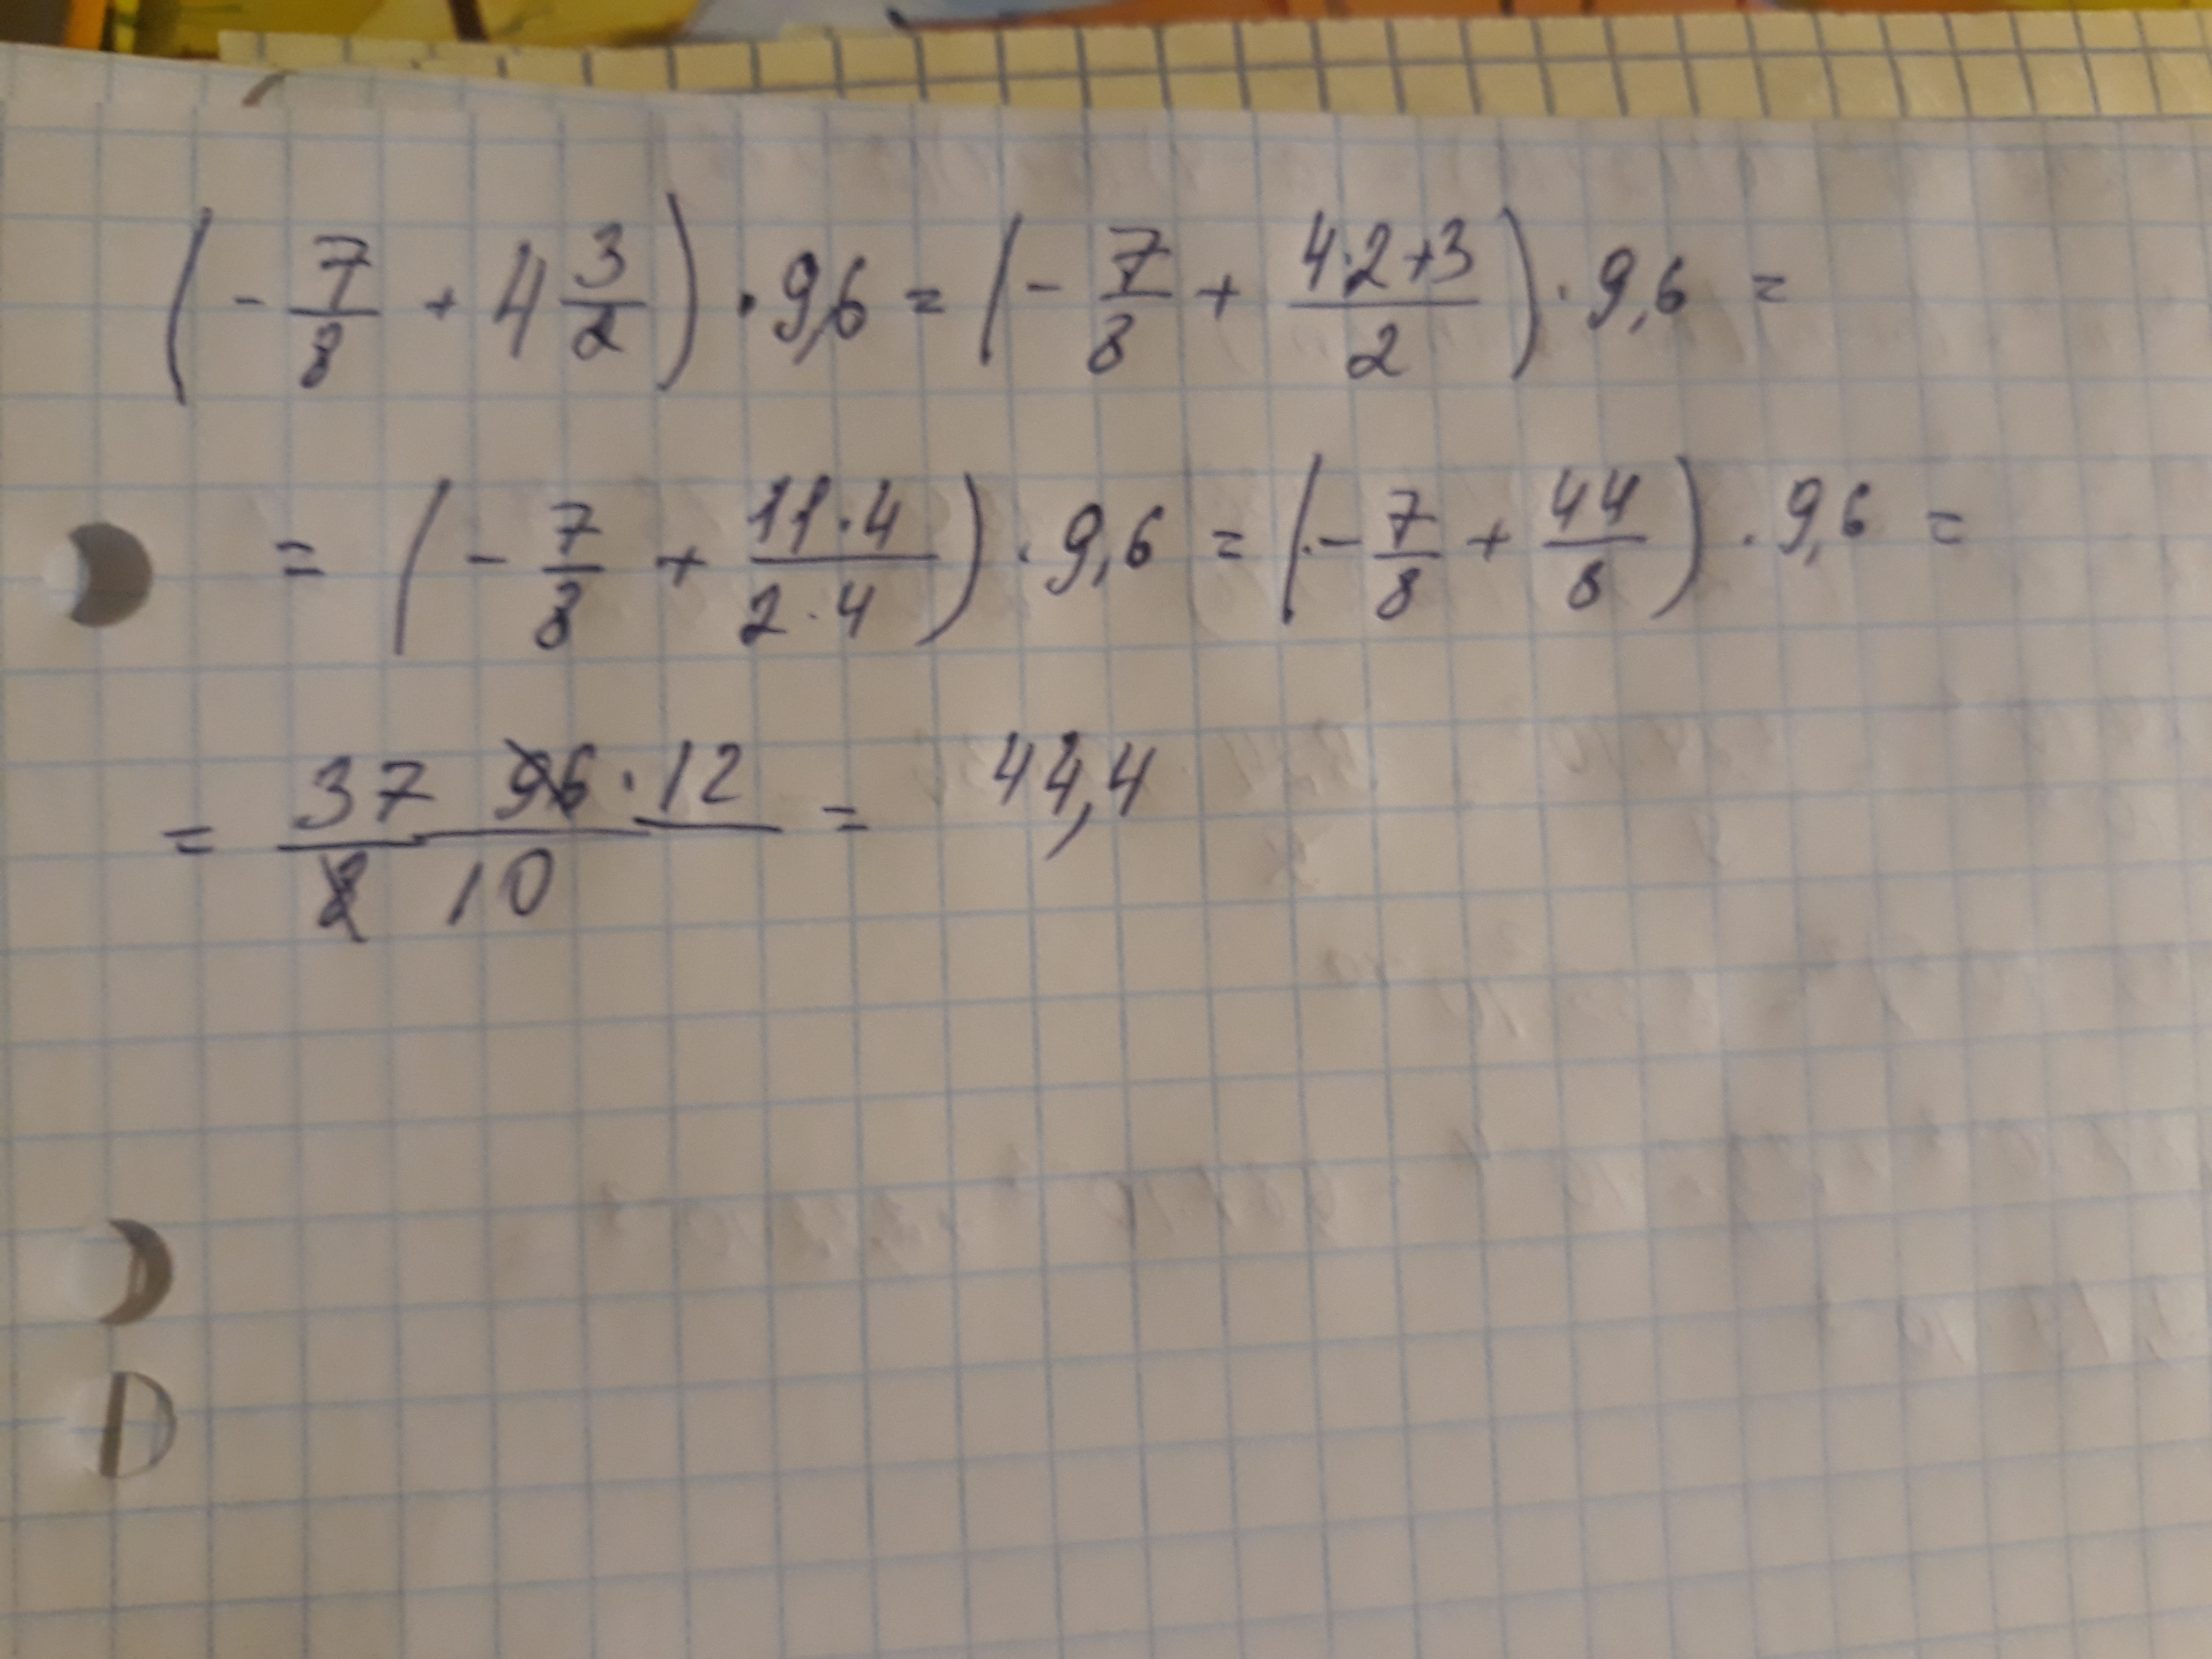 (- 7/8 + 4 3/2) · 9,6 = (- 7/8 + 4·2+3/2) · 9,6 =
= (- 7/8 + 11·4/2·4) · 9,6 = (- 7/8 + 44/8) · 9,6 =
= 37 96 · 12/8 10 = 44,4